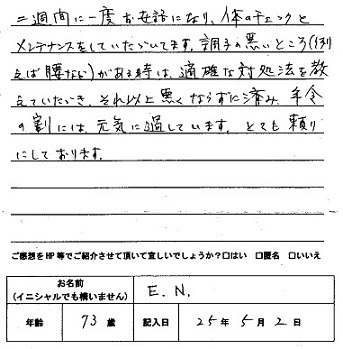 二週間に一度お世話になり、体のチェックと
メンテナンスをしていただいてます。調子の悪いところ(例
えば腰など)がある時は、適確な対処法を教
えていただき、それ以上悪くならずに済み、年令
の割には、元気に過しています。とても頼り
にしております。
ご感想をHP等でご紹介させて頂いて宜しいでしょうか?□はい □匿名 □いいえ
お名前
(イニシャルでも構いません)
E. N.
年齢 73 歳 記入日 25 年 5 月 2 日